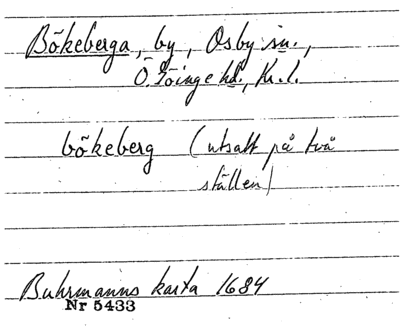 Bökeberga, by, Osby sn.,
Ö. Göinge hd., Kr. l.
bökeberg (utsatt på två
ställen)
Buhrmanns karta 1684
Nr 5433